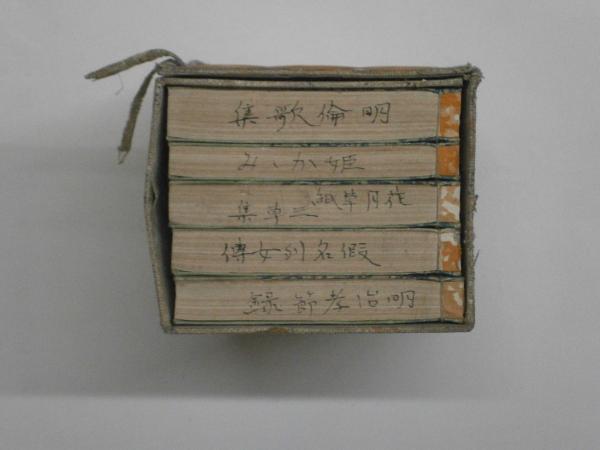 明倫歌集
姫かゝみ
花月草紙 三草集
假名列女傳
明治孝節録